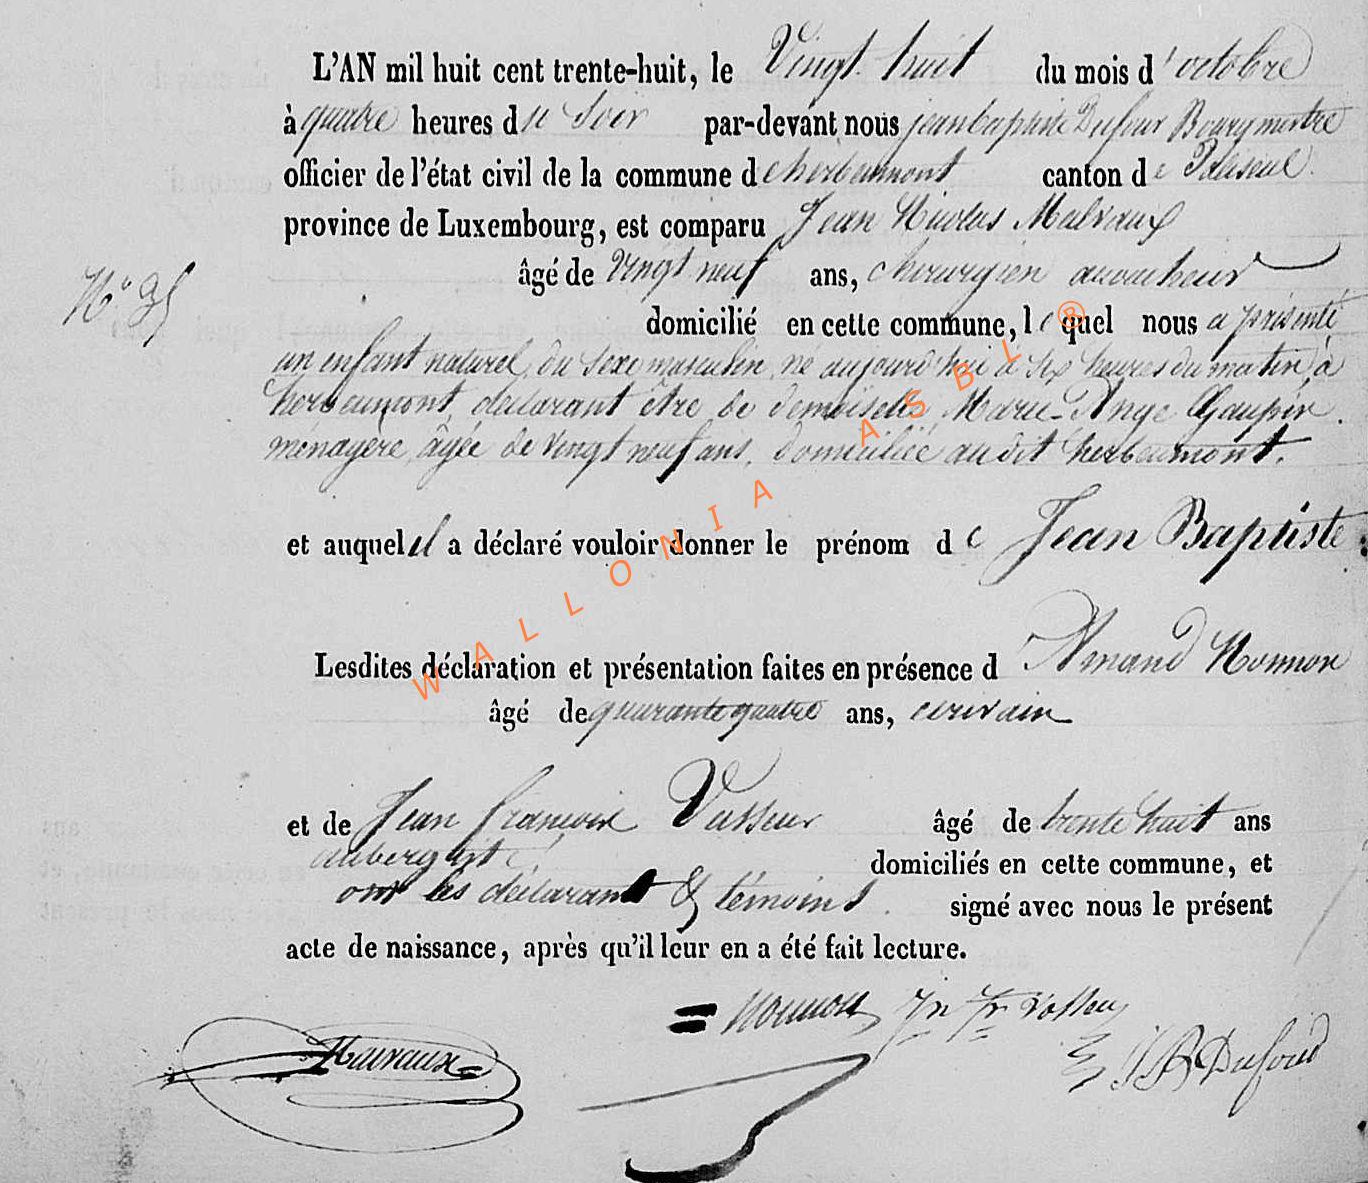 L'AN mil huit cent trente-huit, le Vingt huit du mois d'octobre
à quatre heures du Soir par-devant nous jean baptiste Dufour Bourgmestre
officier de l'état civil de la commune de herbeumont canton de Paliseul
province de Luxembourg, est comparu Jean Nicolas Malvaux
âgé de Vingt neuf ans, chirurgien accoucheur
N° 35
domicilié en cette commune, le quel nous a présenté
un enfant naturel, du sexe masculin, né aujourd'hui à six heures du matin, à
herbeumont, déclarant être de demoiselle Marie-Ange Gaupin.
ménagère, âgée de vingt neuf ans, domiciliée audit herbeumont.
et auquel il a déclaré vouloir donner le prénom de Jean Baptiste
Lesdites déclaration et présentation faites en présence d Amand Nonnon
âgé de quarante quatre ans, écrivain
et de Jean françois Vasseur âgé de trente huit ans
aubergiste, domiciliés en cette commune, et
ont les déclarant & témoins. signé avec nous le présent
acte de naissance, après qu'il leur en a été fait lecture.
Nonnon Jn Fr Vasseur
Malvaux JB Dufour
WALLONIA ASBL ®